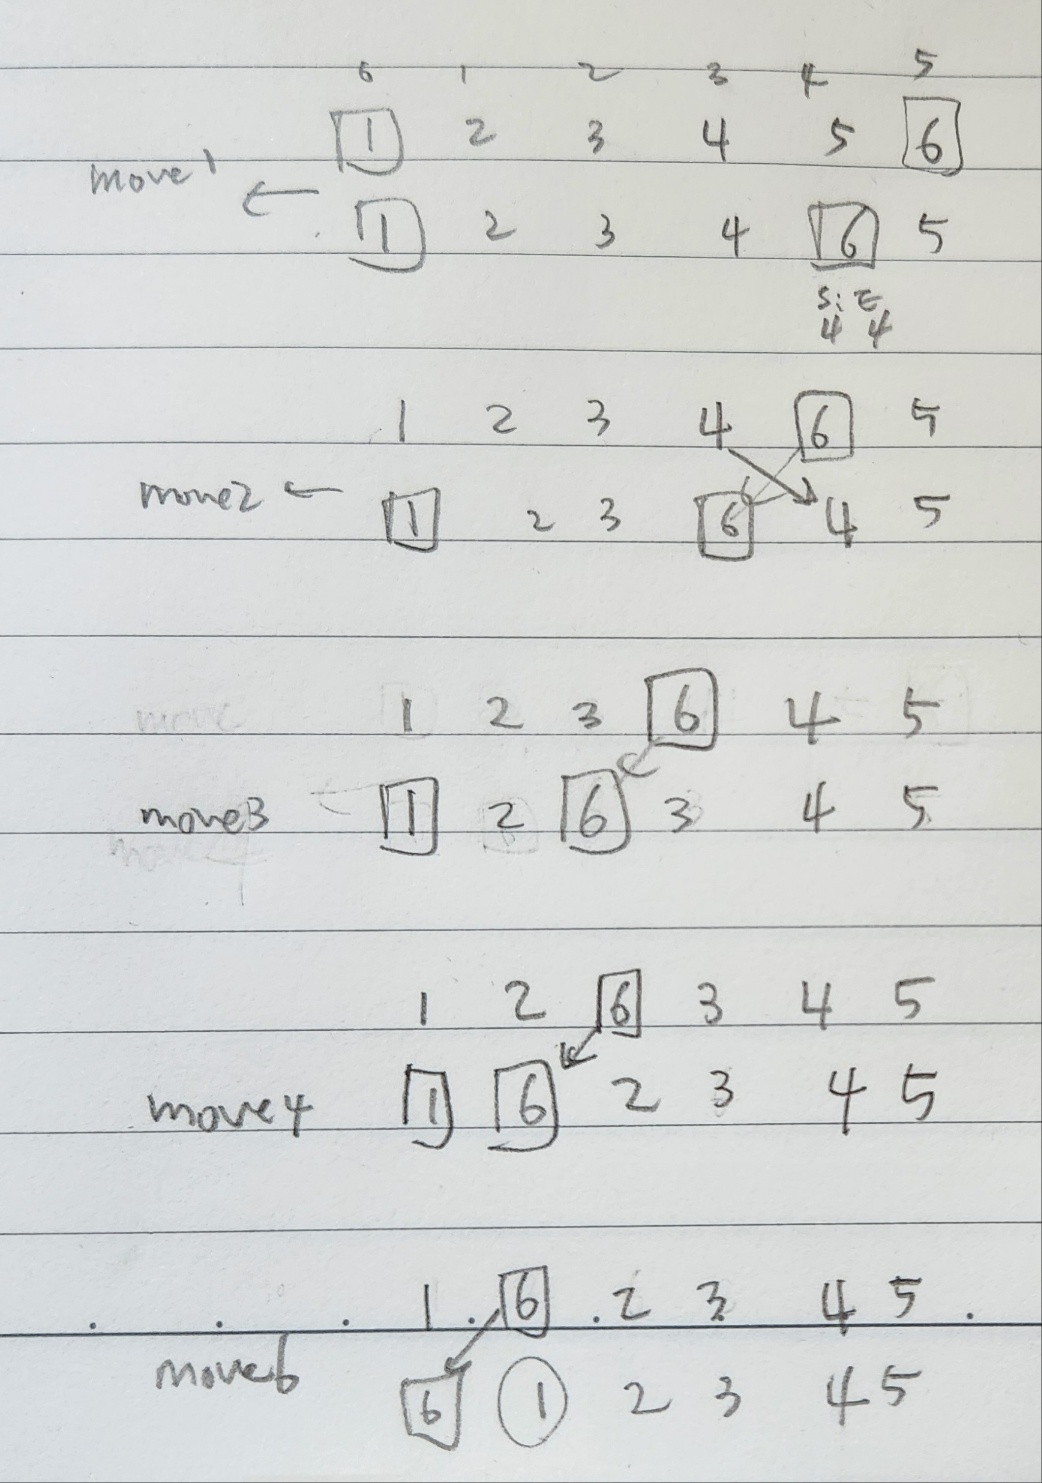 0 1 2 3 4 5
1 2 3 4 5 6
move1 ←
1 2 3 4 6 5
S: E
4 4
1 2 3 4 6 5
move2 ← 1 2 3 6 4 5
1 2 3 6 4 5
move3 ← 1 2 6 3 4 5
1 2 6 3 4 5
move4 1 6 2 3 4 5
1 6 2 3 4 5
move6 6 1 2 3 4 5